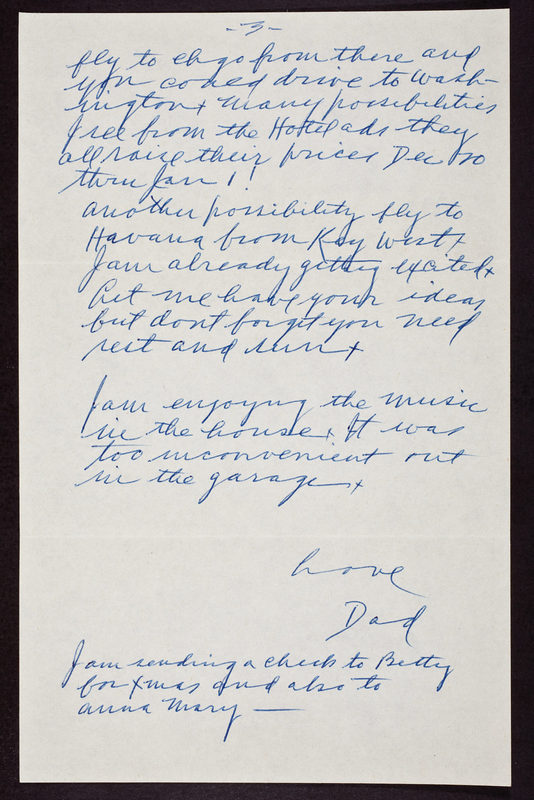 -3-
fly to chgo from there and
you could drive to Wash-
ington+ Many possibilities
I see from the Hotel ads they
all raise their prices Dec 20
thru Jan 1!
another possibility fly to
Havana from Key West+
I am already getting excited+
Let me have your ideas
but dont forget you need
rest and sun+
I am enjoying the music
in the house+ It was
too inconvenient out
in the garage+
Love
Dad
I am sending a check to Betty
for Xmas and also to
anna Mary —